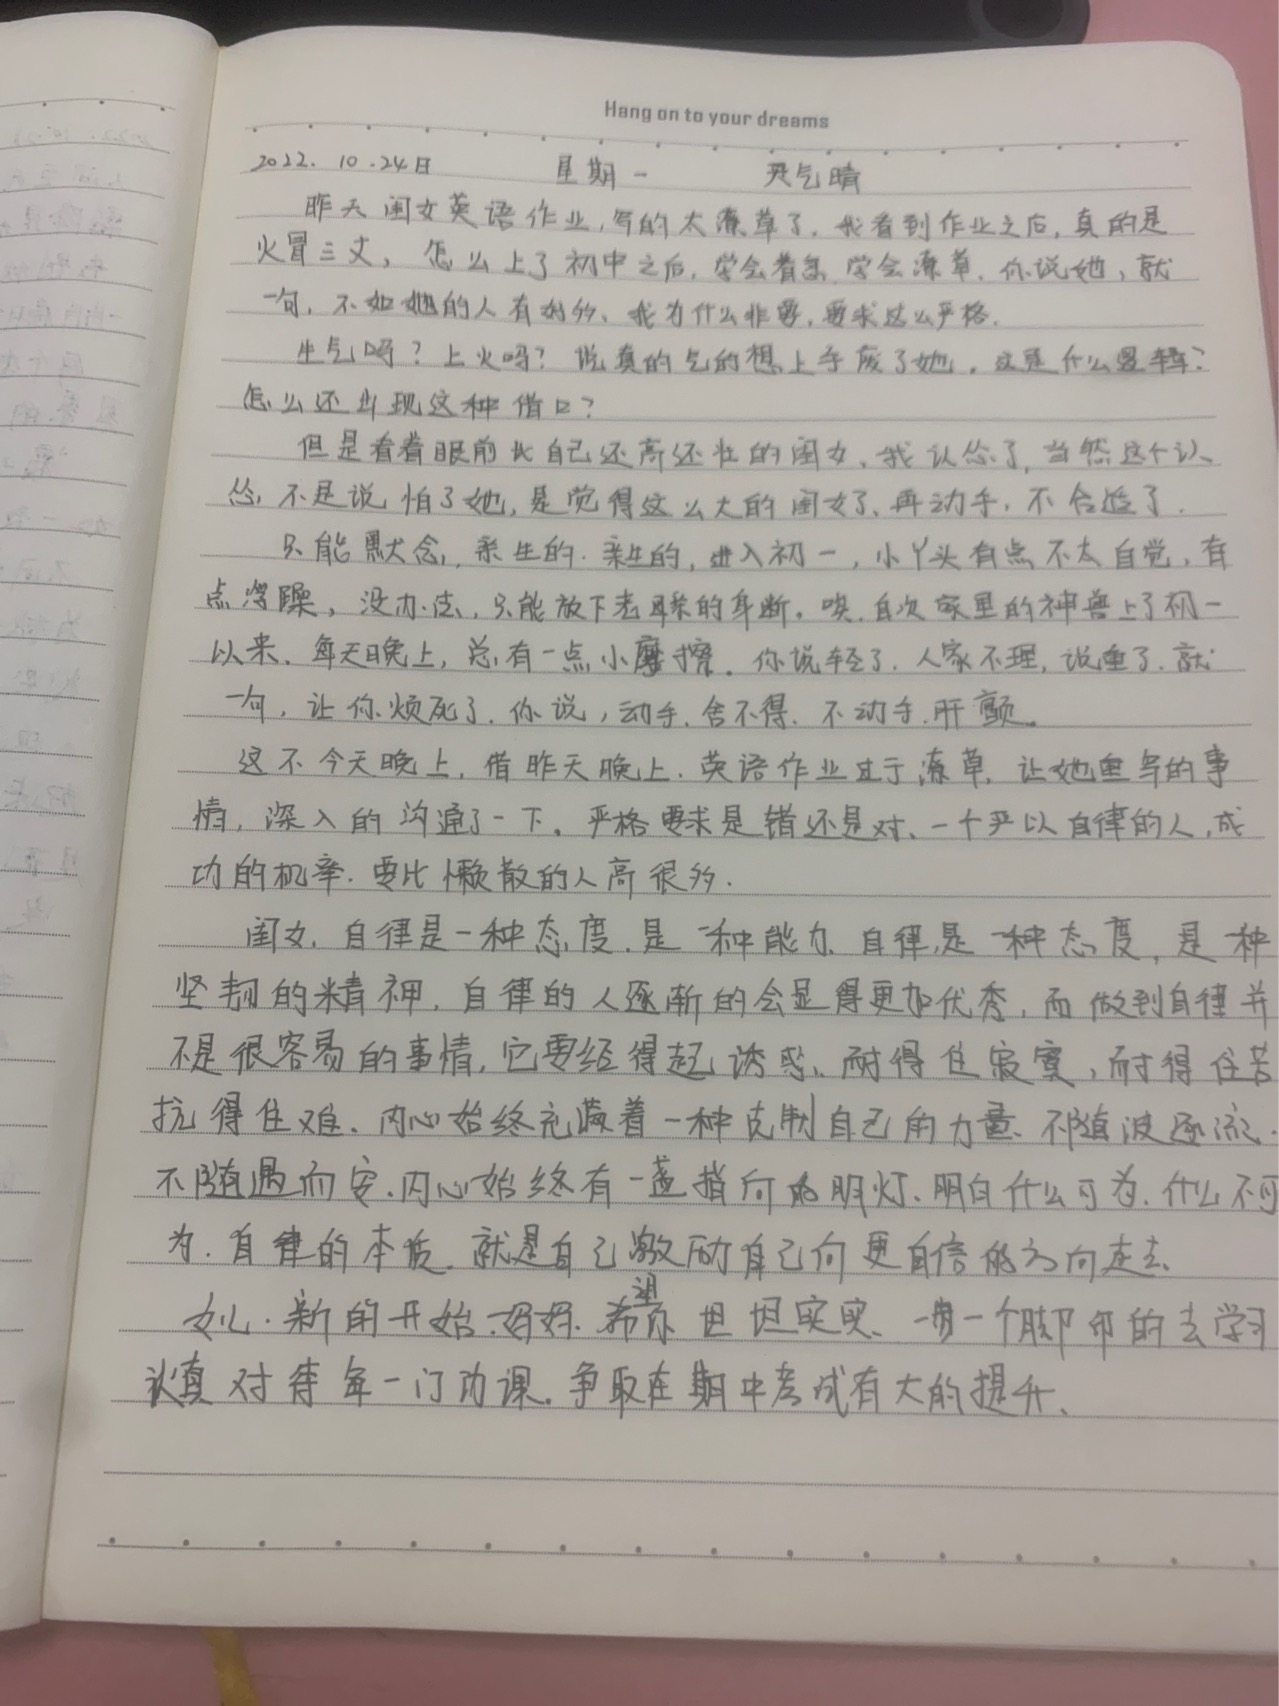 Hang on to your dreams
2022.10.24日 星期一 天气晴
昨天闺女英语作业,写的太潦草了,我看到作业之后,真的是
火冒三丈,怎么上了初中之后,学会着急,学会潦草,你说她,就
一句,不如她的人有好多、我为什么非要,要求这么严格.
生气吗?上火吗?说真的气的想上手废了她,这是什么逻辑?
怎么还出现这种借口?
但是看着眼前比自己还高还壮的闺女,我认怂了,当然这个认
怂,不是说怕了她,是觉得这么大的闺女了、再动手,不合适了.
只能默念,亲生的.亲生的,进入初一,小丫头有点不太自觉,有
点浮躁,没办法,只能放下老母亲的身断。唉,自次家里的神兽上了初一
以来,每天晚上,总有一点小摩擦。你说轻了,人家不理,说重了,就
一句,让你烦死了,你说,动手,舍不得、不动手,肝颤。
这不今天晚上,借昨天晚上,英语作业过于潦草,让她重写的事
情,深入的沟通了一下。严格要求是错还是对、一个严以自律的人,成
功的机率.要比懒散的人高很多.
闺女,自律是一种态度,是一种能力,自律,是一种态度,是一种
坚韧的精神,自律的人逐渐的会显得更加优秀,而做到自律并
不是很容易的事情,它要经得起诱惑、耐得住寂寞,耐得住苦
抗得住难、内心始终充满着一种克制自己的力量、不随波逐流.
不随遇而安.内心始终有一盏指向的明灯、明白什么可为.什么不可
为.自律的本质,就是自己激励自己向更自信的方向走去.
女儿.新的开始,妈妈.希望你坦坦实实、一步一个脚印的去学习
认真对待每一门功课。争取在期中考试有大的提升、